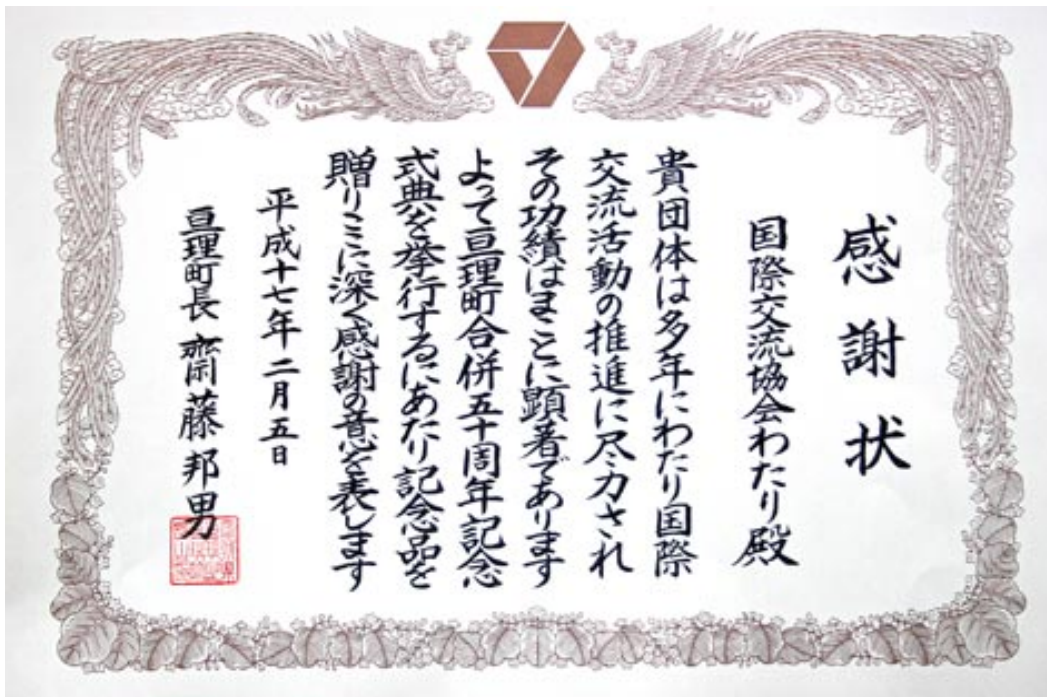 感謝状
国際交流協会わたり殿
貴団体は多年にわたり国際
交流活動の推進に尽力され
その功績はまことに顕著であります
よって亘理町合併五十周年記念
式典を挙行するにあたり記念品を
贈りここに深く感謝の意を表します
平成十七年二月五日
亘理町長 齋藤邦男